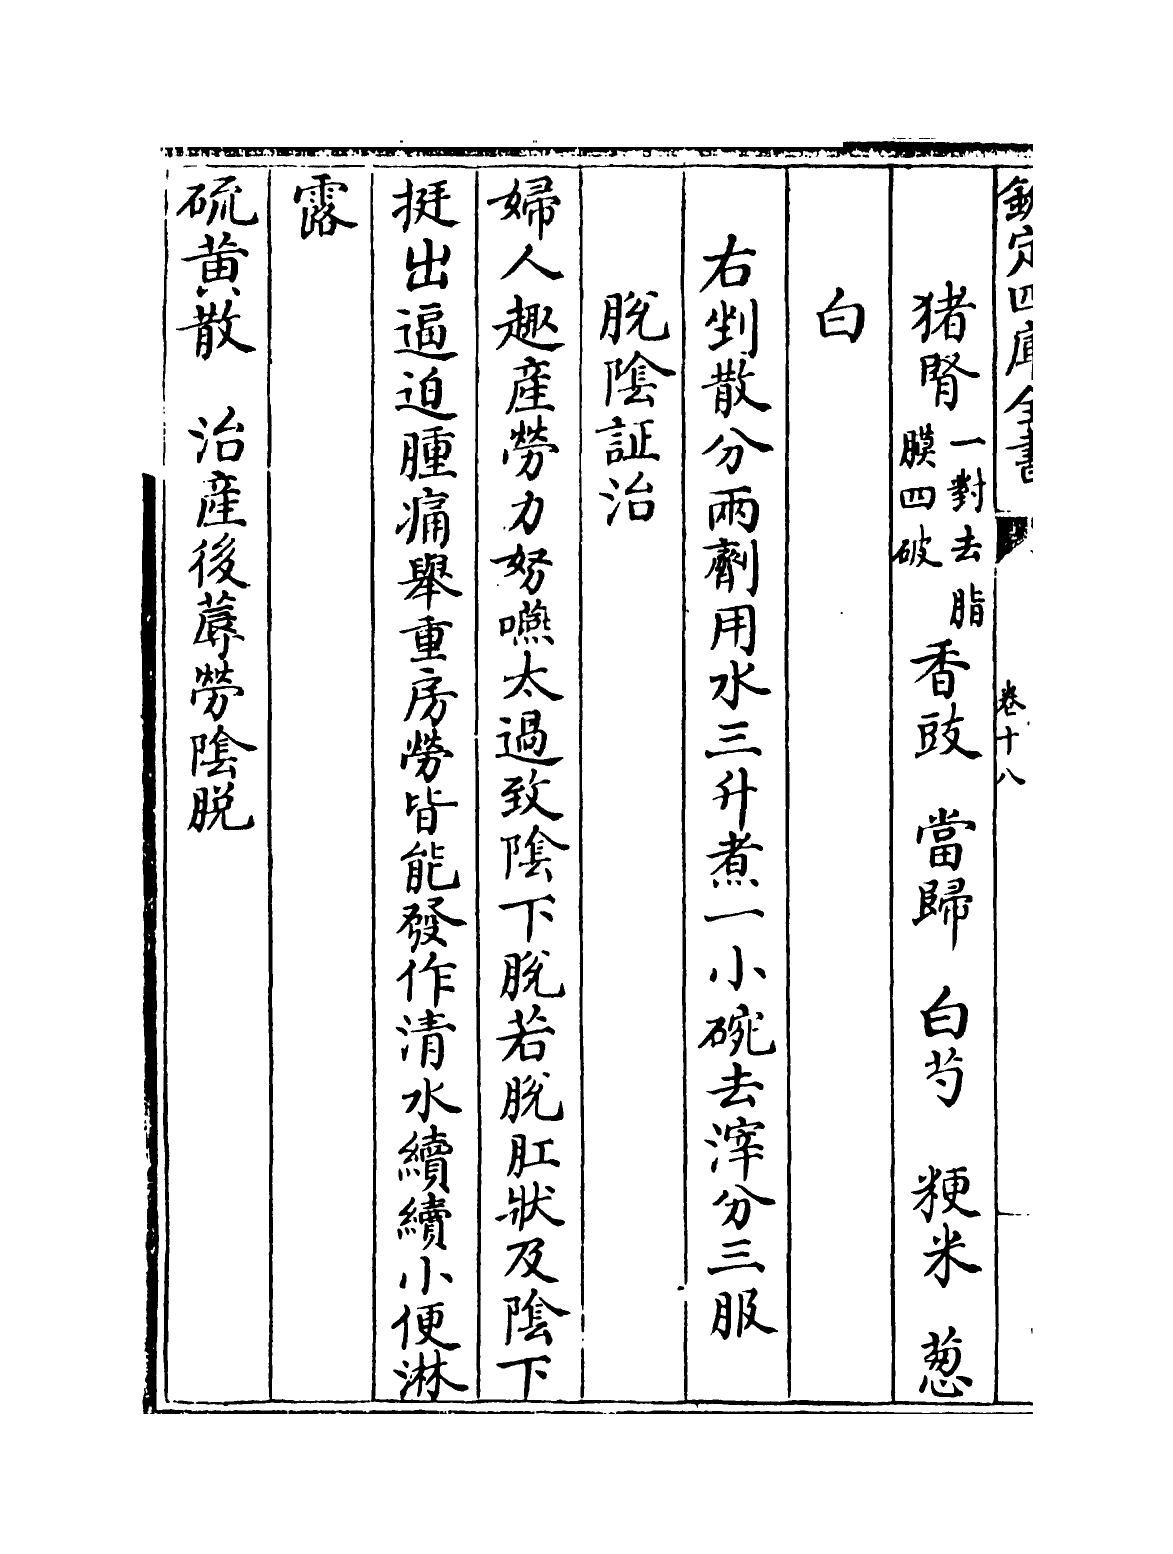 欽定四庫全書
卷十八
猪腎一對去脂膜四破 香豉 當歸 白芍 粳米 葱
白
右剉散分兩劑用水三升煮一小碗去滓分三服
脫陰証治
婦人趣産勞力努嚥太過致陰下脫若脫肛狀及陰下
挺出逼迫腫痛舉重房勞皆能發作清水續續小便淋
露
硫黄散 治産後蓐勞陰脫